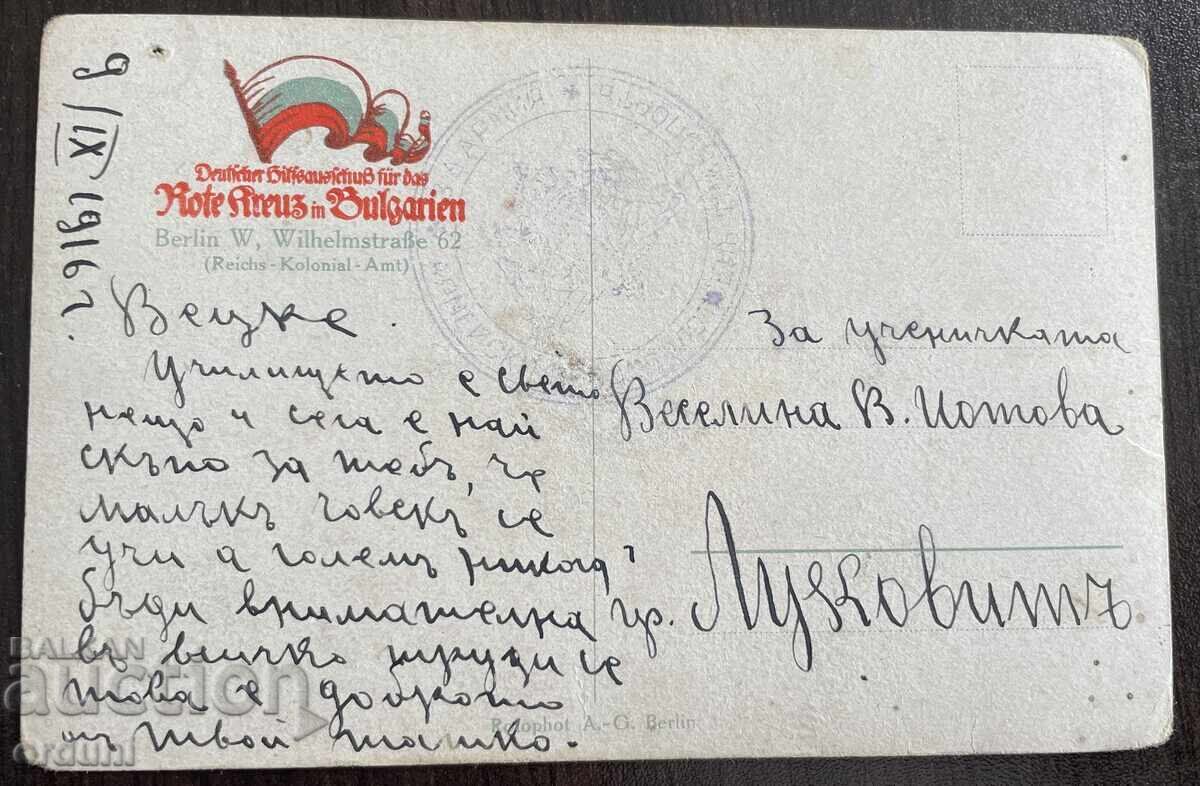 9/IX 1916 г.
Deutscher Hilfsausschuß für das
Rote Kreuz in Bulgarien
Berlin W, Wilhelmstraße 62
(Reichs-Kolonial-Amt)
Вецке.
Училището е свето
нещо и сега е най
скъпо за тебъ, че
малъкъ човекъ се
учи а големъ никога
бъди внимателна
въ всичко труди се
това е доброто
отъ твой татко.
За ученичката
Веселина В. Иотова
гр. Луковитъ
Rotophot A.-G. Berlin
BALKAN
auction
orduni